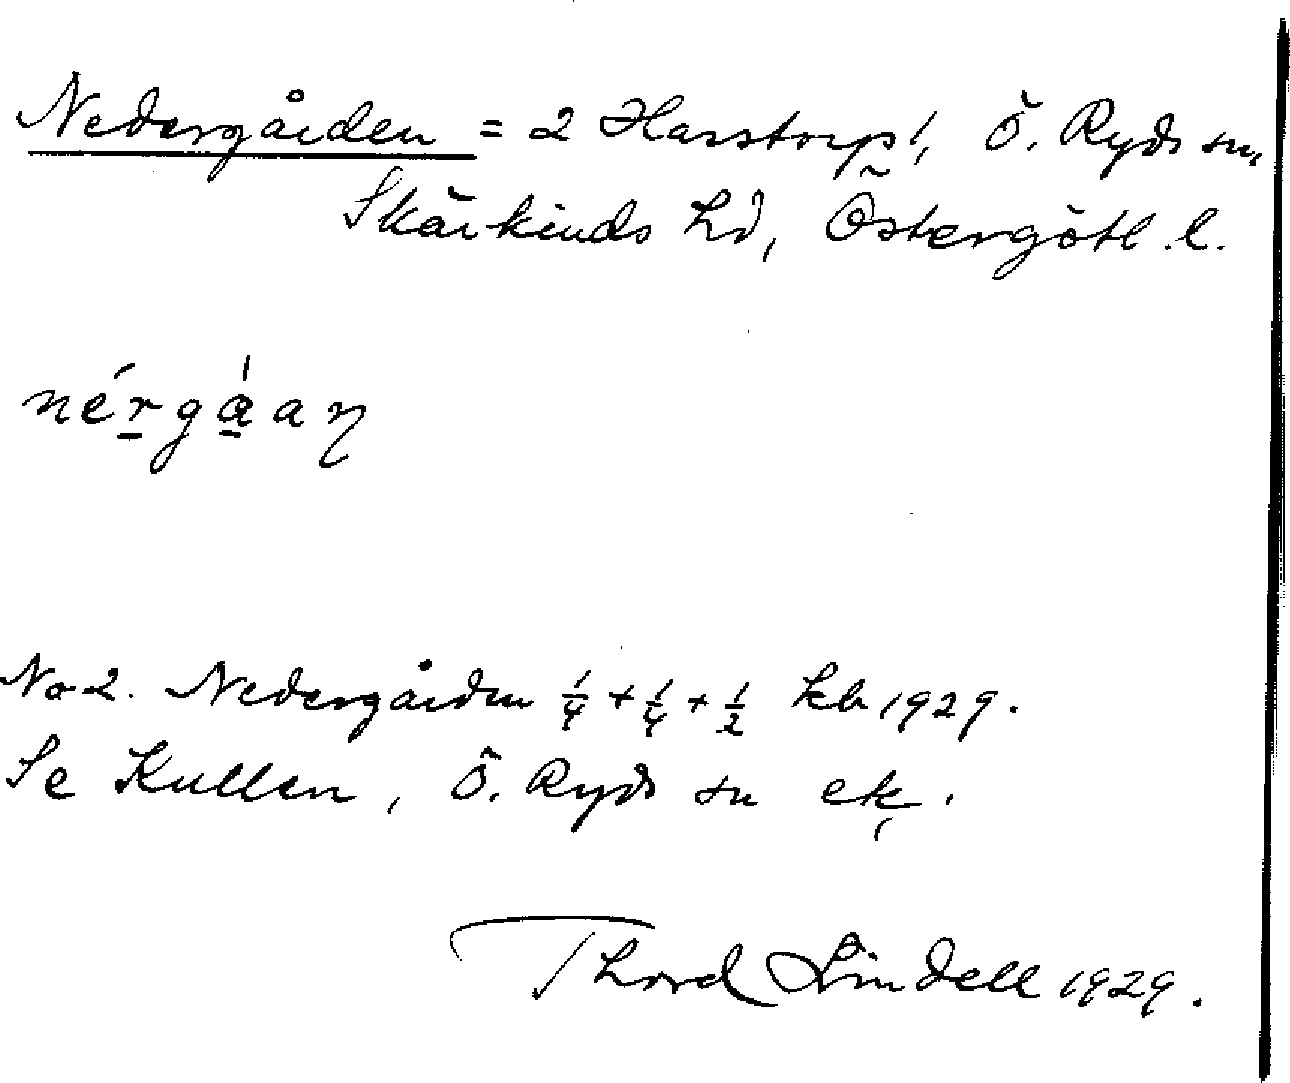 Nedergården = 2 Harstorp!, Ö. Ryds sn,
Skärkinds hd, Östergötl. l.
nérgá̱an
No 2. Nedergården 1/4 + 1/4 + 1/2 kb 1929.
Se Kullen, Ö. Ryds sn ek.
Thord Lindell 1929.